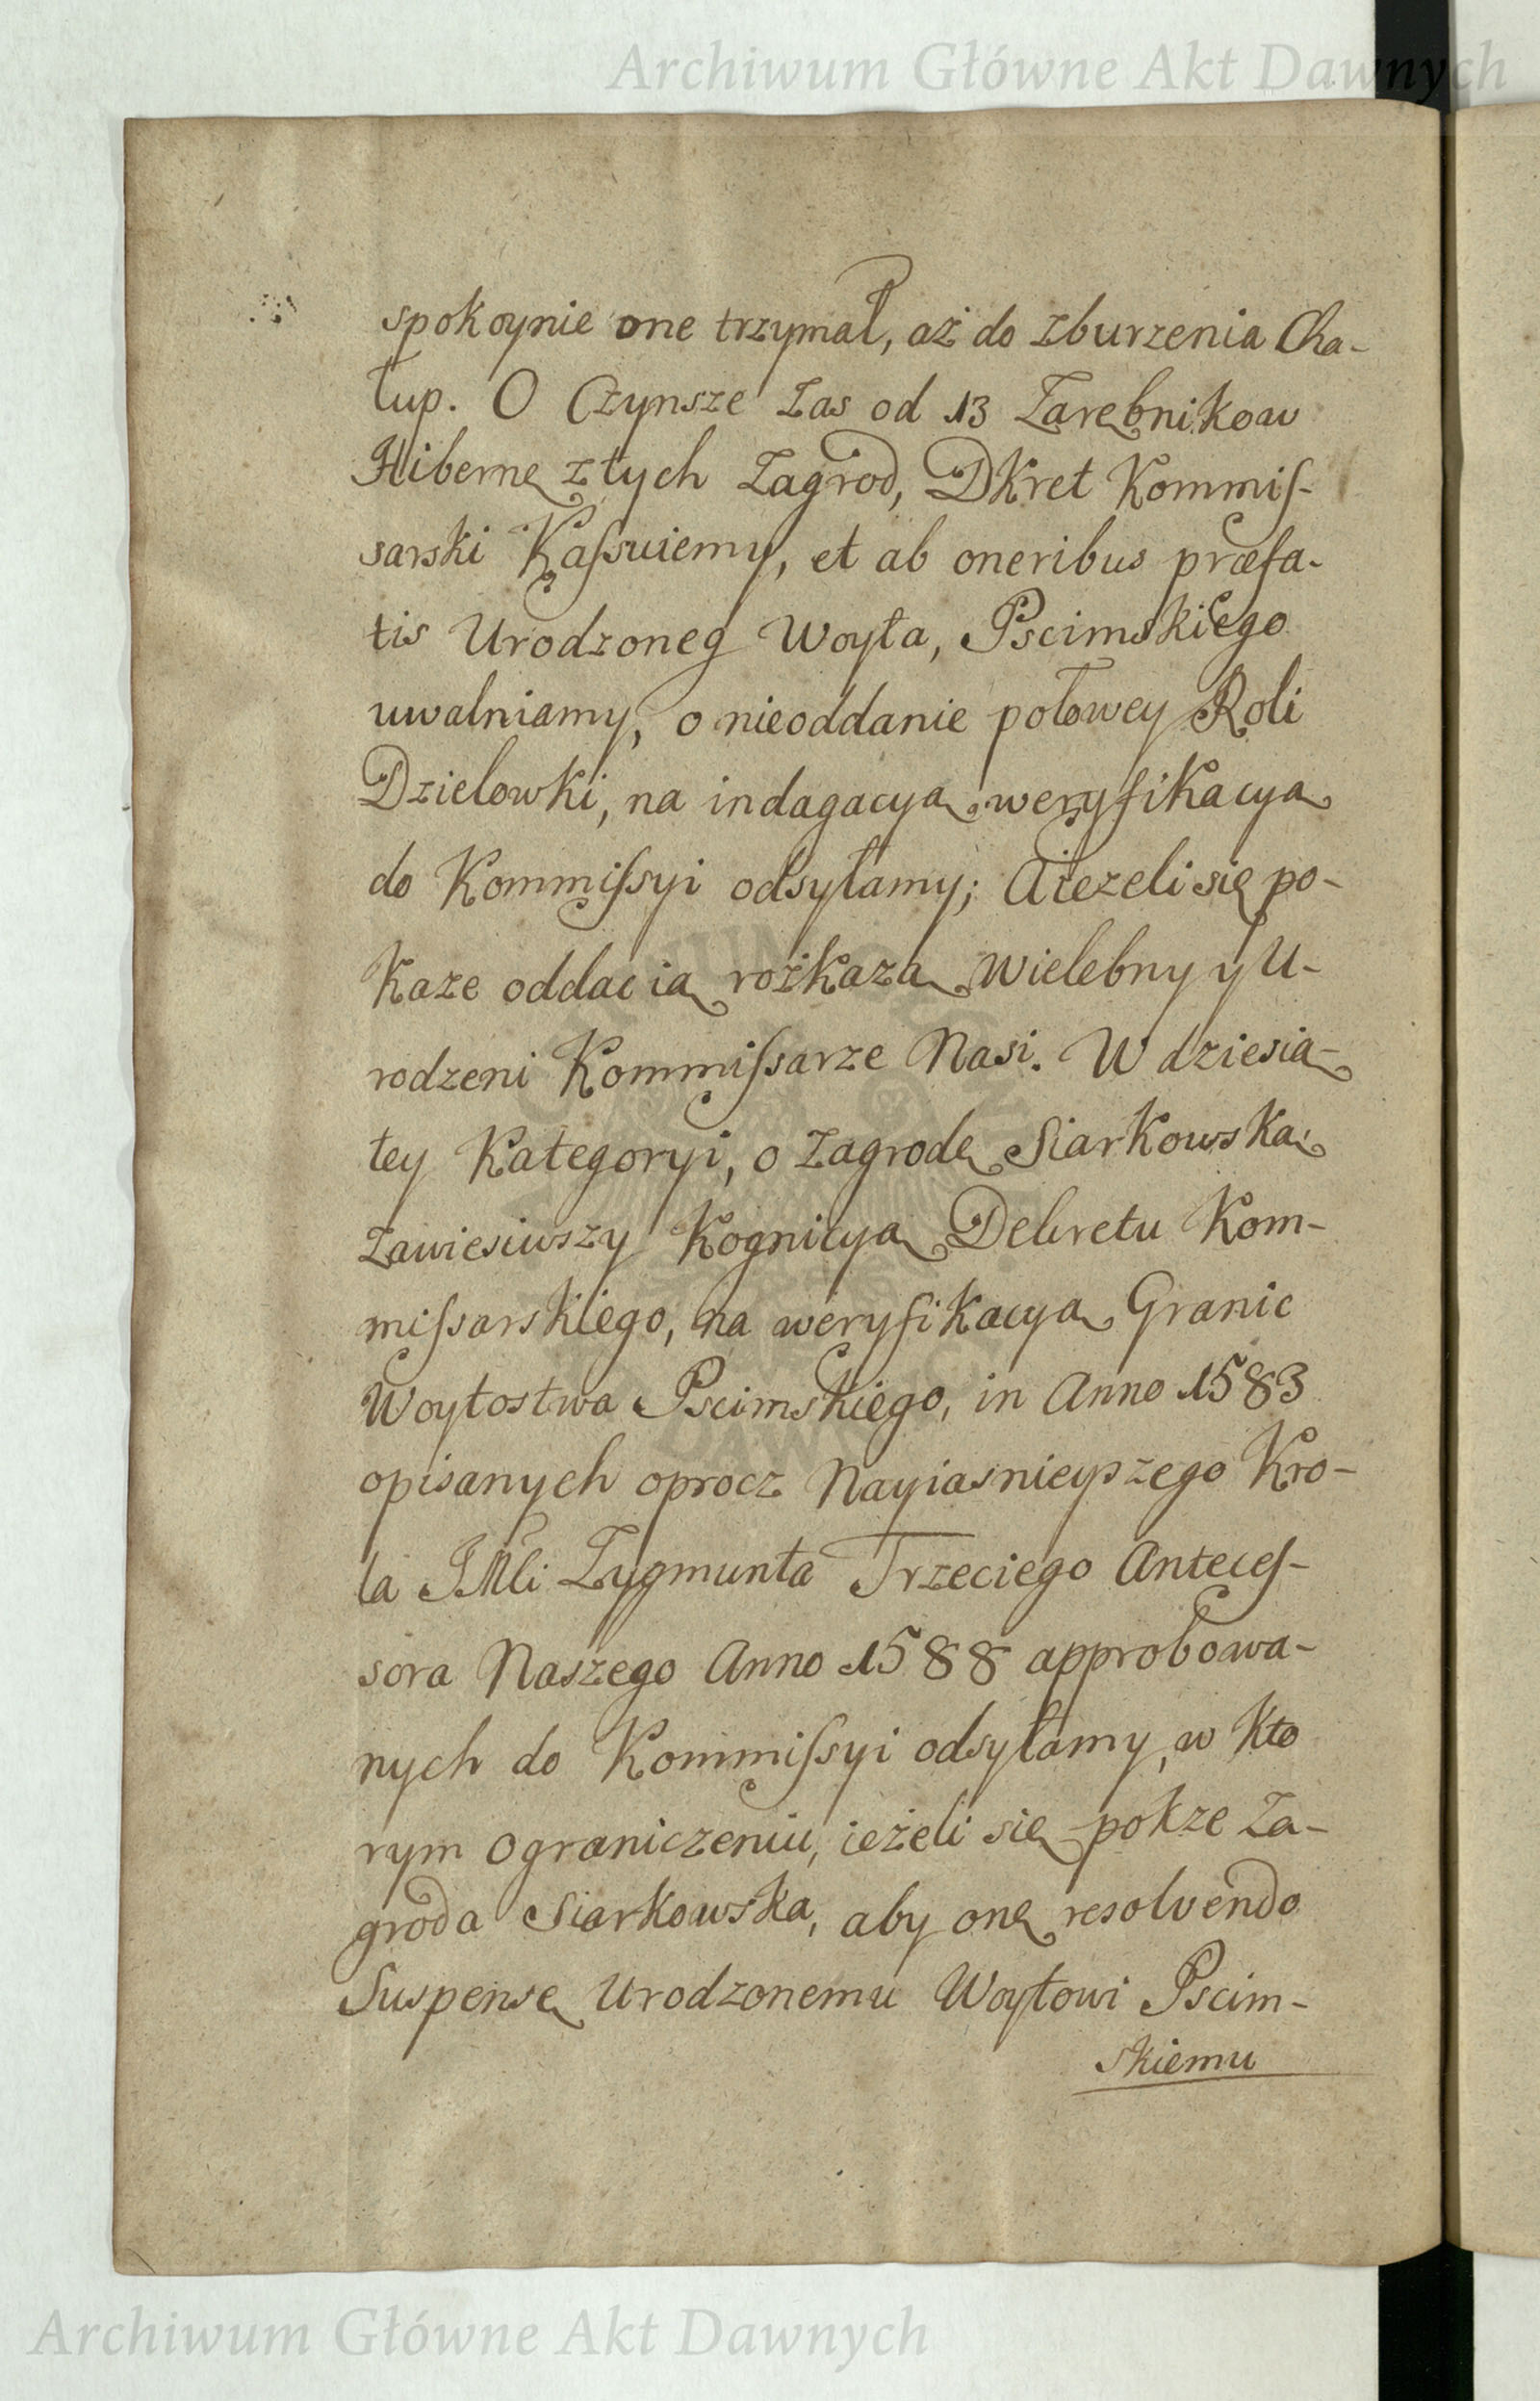 Archiwum Główne Akt Dawnych
spokoynie one trzymał, aż do zburzenia Cha-
łup. O Czynsze zas od 13 Zarębnikow
Hibernę z tych Zagrod, DKret Kommiſ-
sarski Kaſsuiemy, et ab oneribus præfa-
tis Urodzoneg Woyta, Pscimskiego
uwalniamy, o nieoddanie połowey Roli
Dzielowki, na indagacyą weryfikacyą
do Kommiſsyi odsyłamy; A ieżeli się po-
każe oddac ią rozkażą Wielebny y U-
rodzeni Kommiſsarze Nasi. W dziesią-
tey Kategoryi, o Zagrodę Siarkowską
zawiesiwszy Kognicyą Dekretu Kom-
miſsarskiego, na weryfikacyą Granic
Woytostwa Pscimskiego, in Anno 1583
opisanych oprocz Nayiasnieyszego Kro-
la JMci Zygmunta Trzeciego Anteceſ-
sora Naszego Anno 1588 approbowa-
nych do Kommiſsyi odsyłamy, w kto
rym ograniczeniu, ieżeli się pokze Za-
groda Siarkowska, aby onę resolvendo
Suspensę Urodzonemu Woytowi Pscim-
skiemu
Archiwum Główne Akt Dawnych